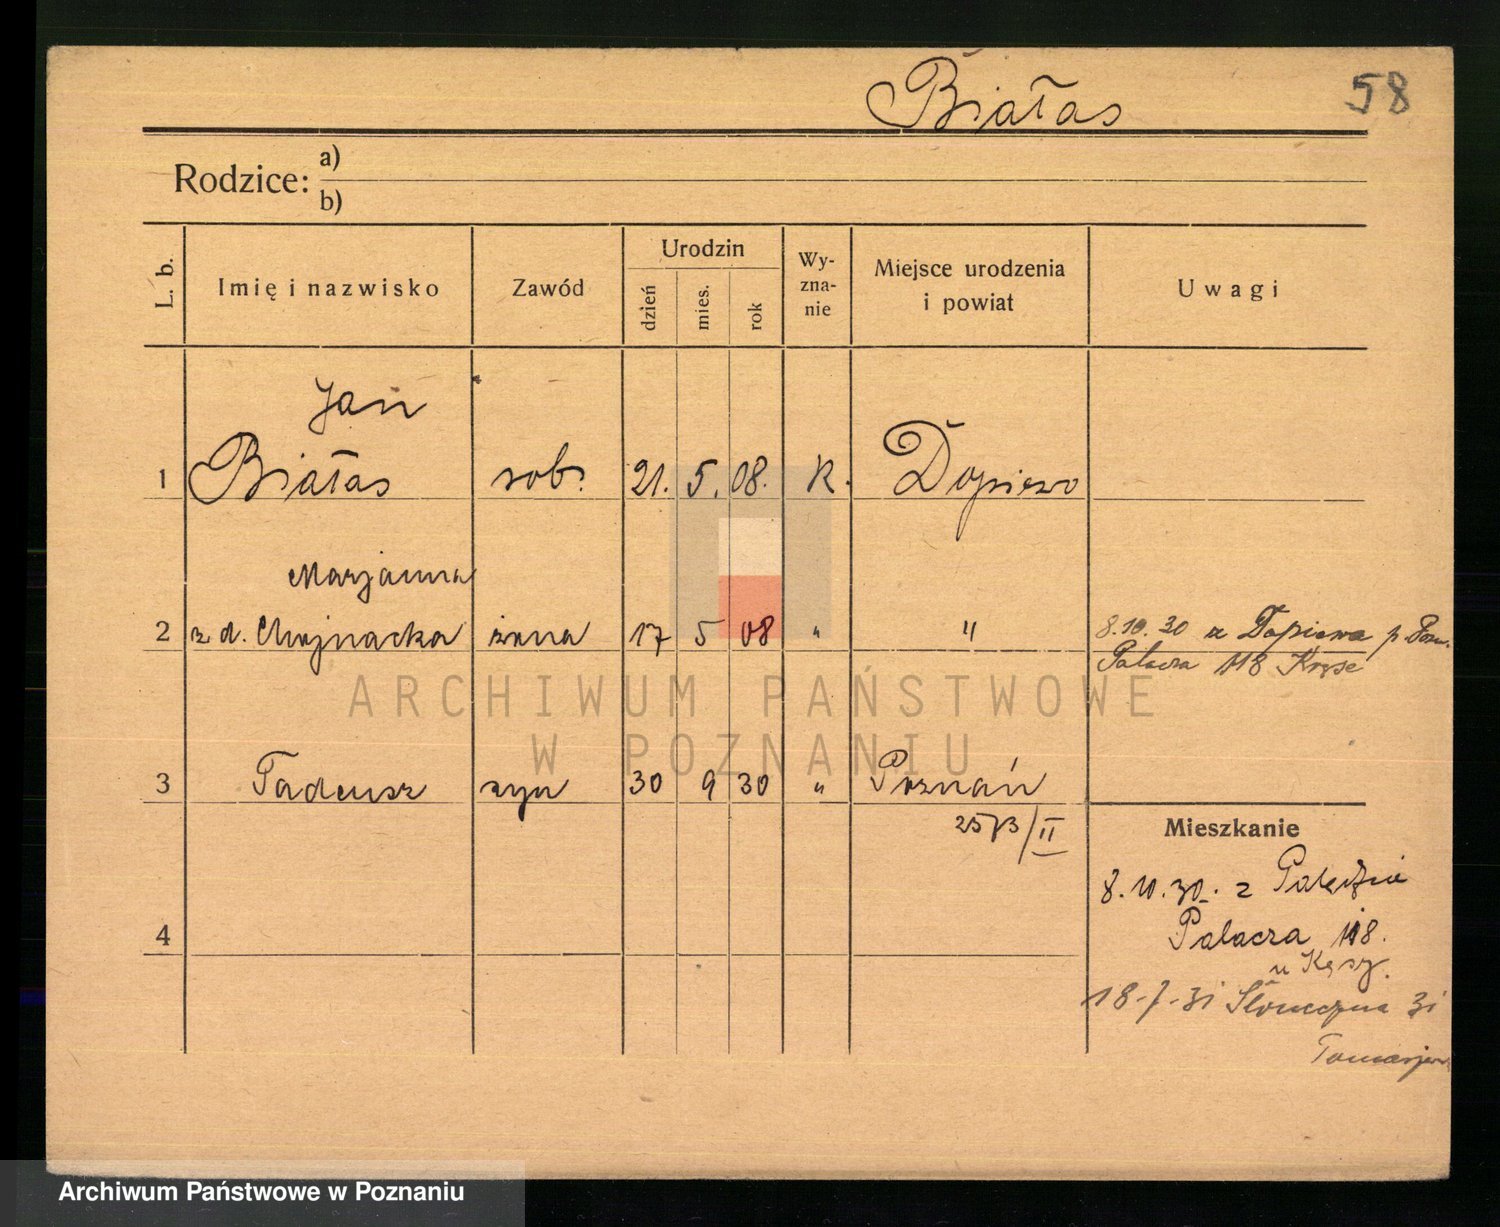 Białas 58
Rodzice: a)
b)
L. b.
Imię i nazwisko
Zawód
Urodzin
dzień
mies.
rok
Wy-
zna-
nie
Miejsce urodzenia
i powiat
Uwagi
Jan
1 Białas rob. 21. 5. 08. K. Dopiewo
Marjanna
2 z d. Chojnacka żona 17 5 08 " " 8.10.30 z Dopiewa p. Pozn.
Palacza 118
ARCHIWUM PAŃSTWOWE
W POZNANIU
3 Tadeusz syn 30 9 30 " Poznań
2573/II
Mieszkanie
8.10.30. z
4 Palacza 118.
u Kęsy.
18-7-31 Słoneczna 31
Archiwum Państwowe w Poznaniu